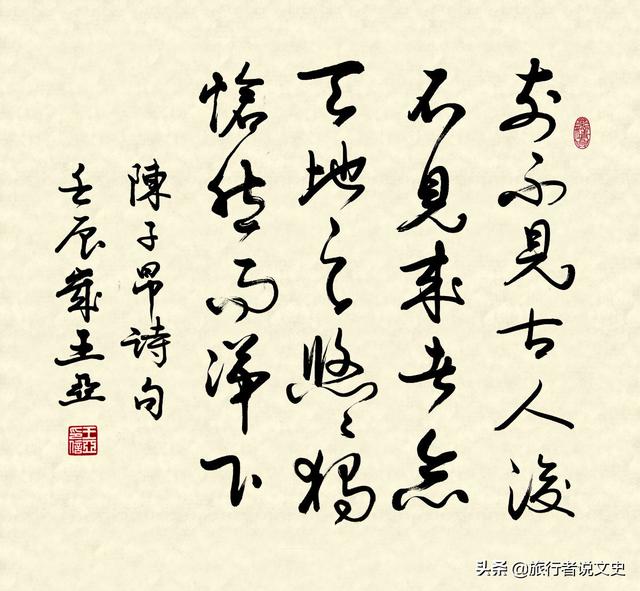 前不見古人後
不見來者念
天地之悠々獨
愴然而涕下
陳子昂詩句
壬辰歲王亞
王亞印信
头条 @旅行者说文史